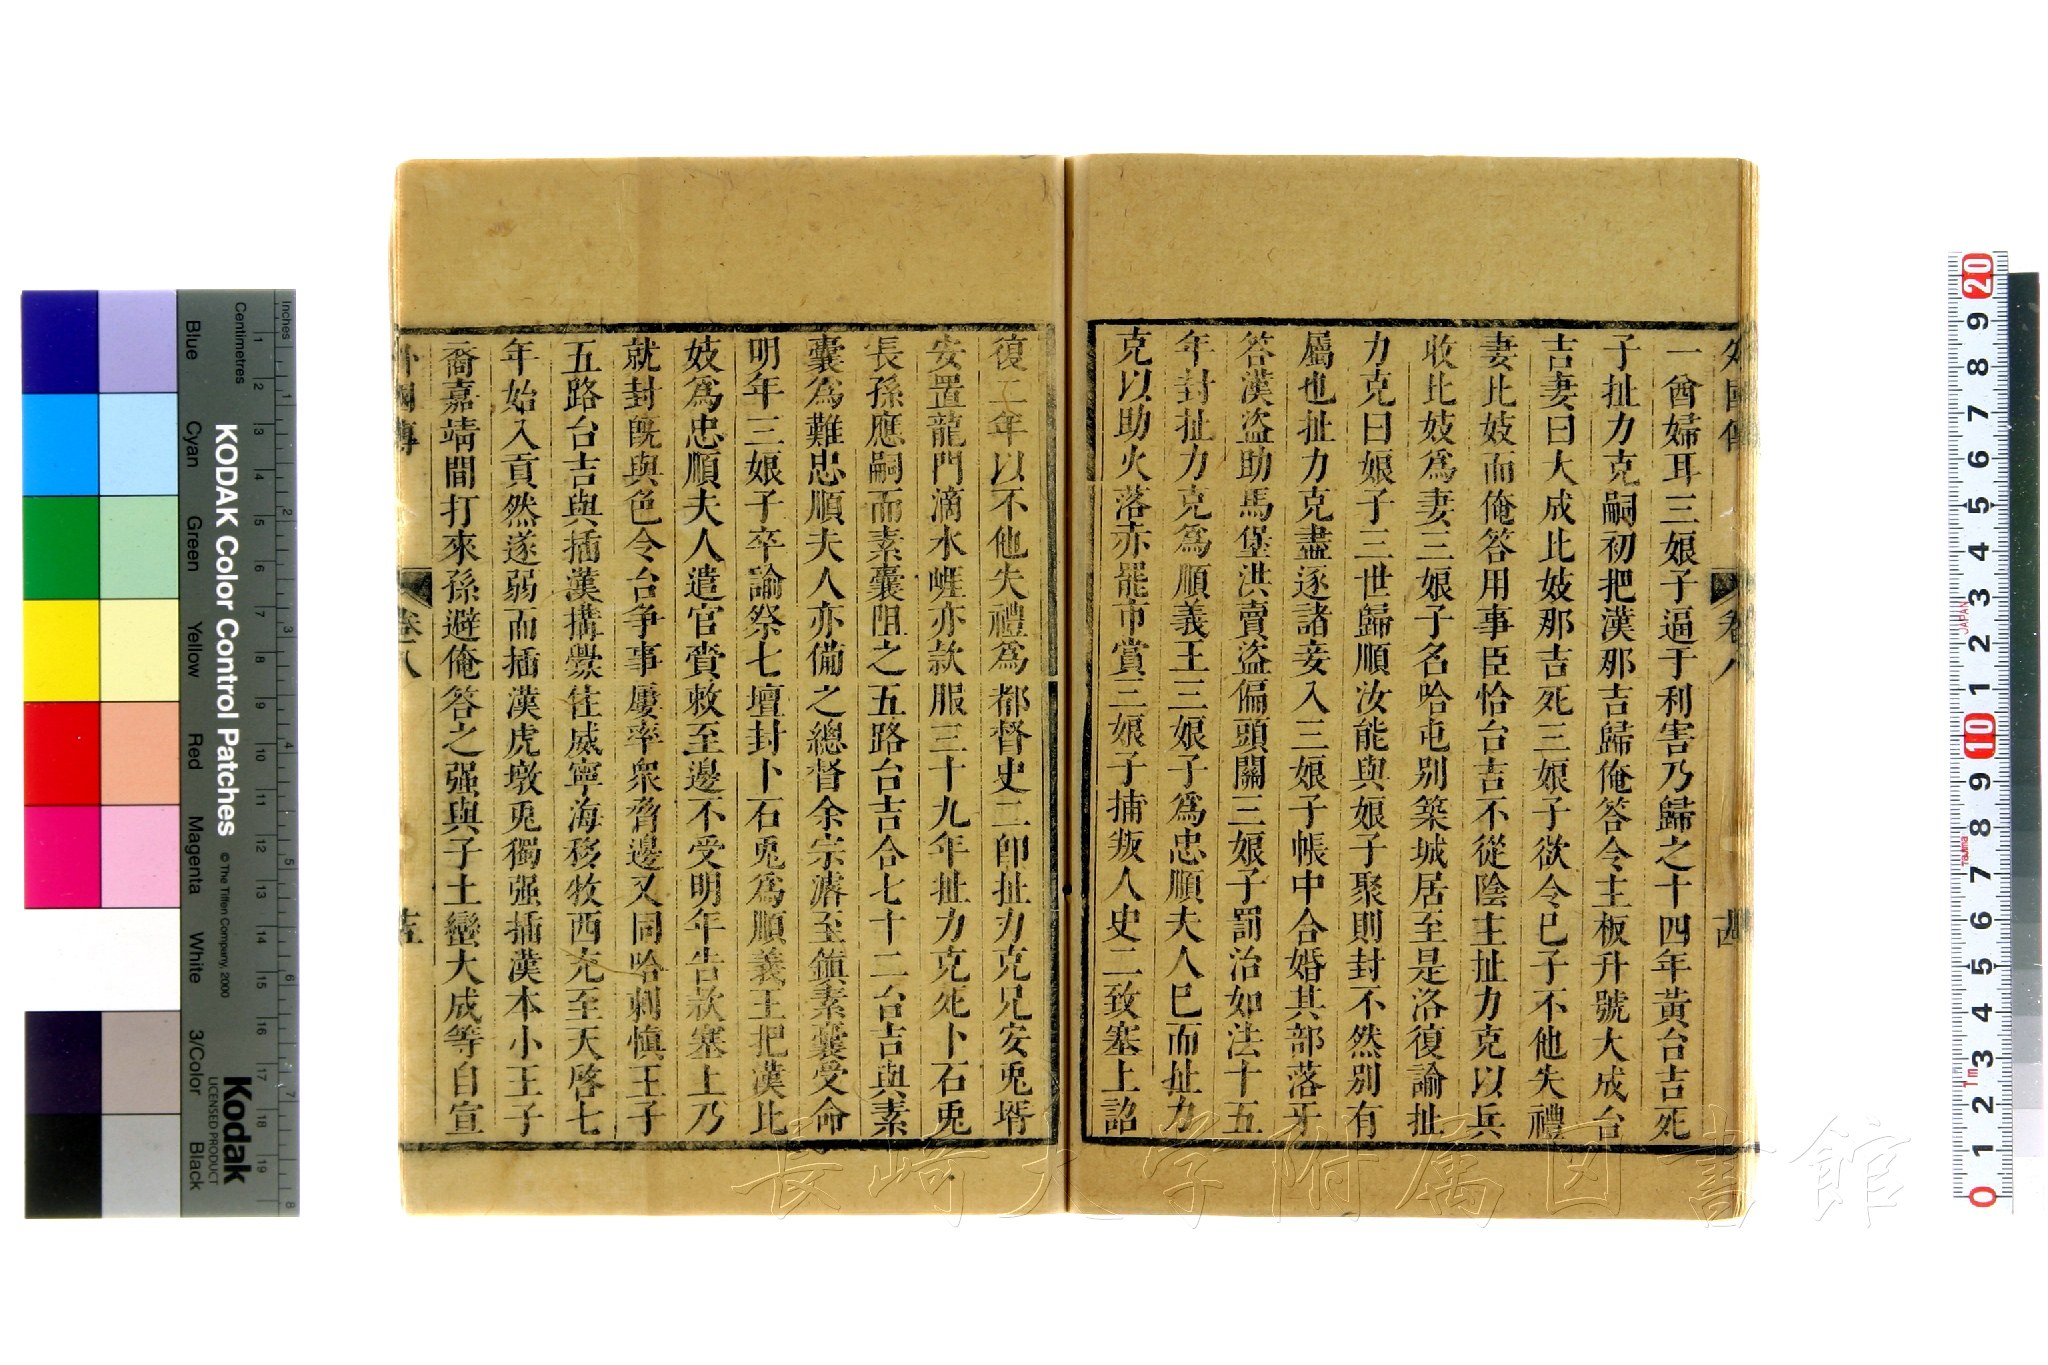 外國傳 卷八 茜
一酋婦耳三娘子逼于利害乃歸之十四年黃台吉死
子扯力克嗣初把漢那吉歸俺答令主板升號大成台
吉妻曰大成比妓那吉死三娘子欲令巳子不他失禮
妻比妓而俺答用事臣恰台吉不從陰主扯力克以兵
收比妓爲妻三娘子名哈屯別築城居至是洛復諭扯
力克曰娘子三世歸順汝能與娘子聚則封不然別有
屬也扯力克盡逐諸妾入三娘子帳中合婚其部落牙
答漢盜助馬堡洪賣盜偏頭關三娘子罰治如法十五
年封扯力克爲順義王三娘子爲忠順夫人巳而扯力
克以助火落赤罷市賞三娘子捕叛人史二致塞上詔
復二年以不他失禮爲都督史二卽扯力克兄安兎壻
安置龍門滴水崕亦款服三十九年扯力克死卜石兎
長孫應嗣而素囊阻之五路台吉合七十二台吉與素
囊爲難忠順夫人亦備之總督余宗濬至鎮素囊受命
明年三娘子卒諭祭七壇封卜石兎爲順義王把漢比
妓爲忠順夫人遣官賚敕至邊不受明年告款塞上乃
就封旣與色令台争事屢率衆脅邊又同哈剌愼王子
五路台吉與插漢搆釁往威寧海移牧西充至天啓七
年始入貢然遂弱而插漢虎墩兎獨强插漢本小王子
裔嘉靖間打來孫避俺答之强與子土蠻大成等自宣
外國傳 卷八 十五
KODAK Color Control Patches
© The Tiffen Company, 2000
Kodak
LICENSED PRODUCT
Inches
Centimetres
Blue
Cyan
Green
Yellow
Red
Magenta
White
3/Color
Black
JAPAN
Tajima
長崎大学附属図書館